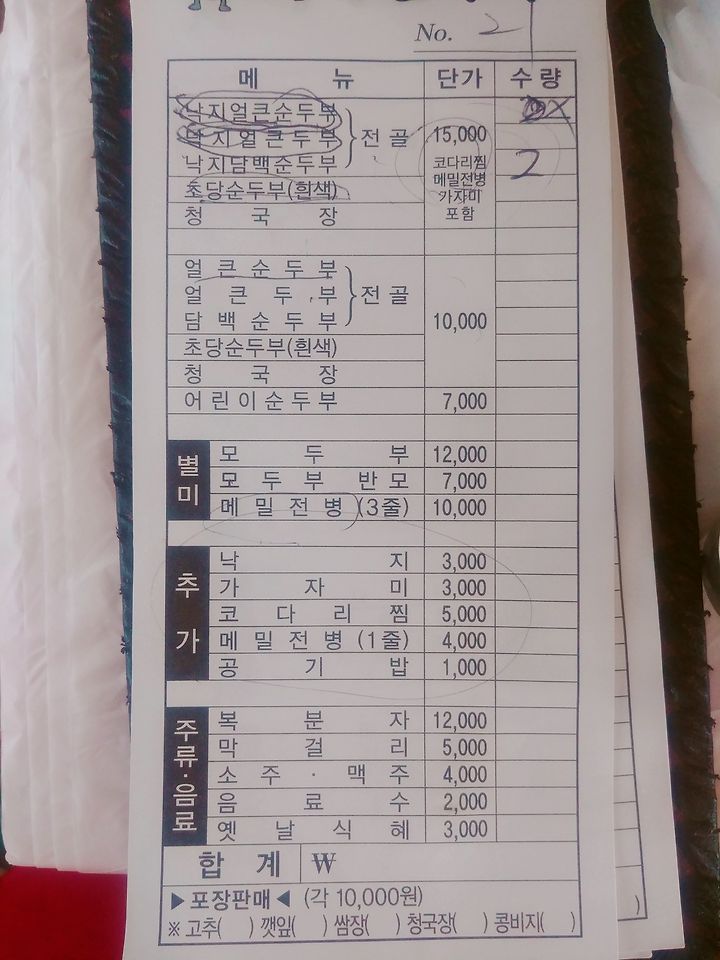 No. 21
메 뉴 단가 수량
낙지얼큰순두부
낙지얼큰두부 전골 15,000
낙지담백순두부 코다리찜 2
메밀전병
초당순두부(흰색) 가자미
청국장 포함
얼큰순두부
얼큰두부 전골
담백순두부 10,000
초당순두부(흰색)
청국장
어린이순두부 7,000
별미
모두부 12,000
모두부 반모 7,000
메밀전병(3줄) 10,000
추가
낙지 3,000
가자미 3,000
코다리찜 5,000
메밀전병(1줄) 4,000
공기밥 1,000
주류·음료
복분자 12,000
막걸리 5,000
소주·맥주 4,000
음료수 2,000
옛날식혜 3,000
합 계 ₩
▶포장판매◀ (각 10,000원)
※ 고추( ) 깻잎( ) 쌈장( ) 청국장( ) 콩비지( )